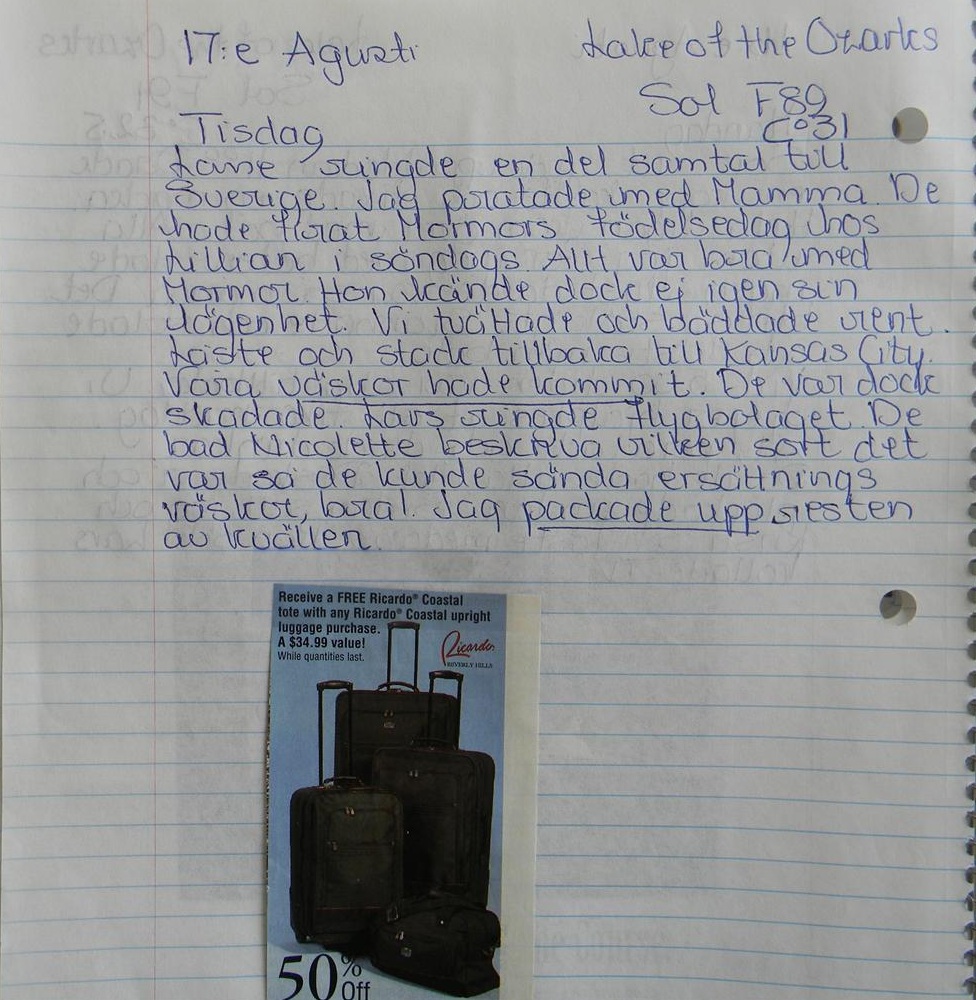 17:e Agusti
Lake of the Ozarks
Sol F89
C°31
Tisdag
Lasse ringde en del samtal till
Sverige. Jag pratade med Mamma. De
hade firat Mormors födelsedag hos
Lillian i söndags. Allt var bra med
Mormor. Hon kände dock ej igen sin
lägenhet. Vi tvättade och bäddade rent.
Låste och stack tillbaka till Kansas City.
Våra väskor hade kommit. De var dock
skadade. Lars ringde flygbolaget. De
bad Nicolette beskriva vilken sort det
var så de kunde sända ersättnings
väskor, bra!. Jag packade upp resten
av kvällen.
Receive a FREE Ricardo® Coastal
tote with any Ricardo® Coastal upright
luggage purchase.
A $34.99 value!
While quantities last.
Ricardo
BEVERLY HILLS
50%
Off